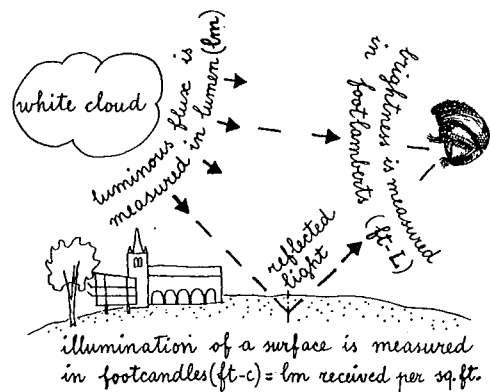 white cloud
luminous flux is
measured in lumen (lm)
brightness is measured
in footlamberts
(ft-L)
reflected
light
illumination of a surface is measured
in footcandles (ft-c) = lm received per sq.ft.